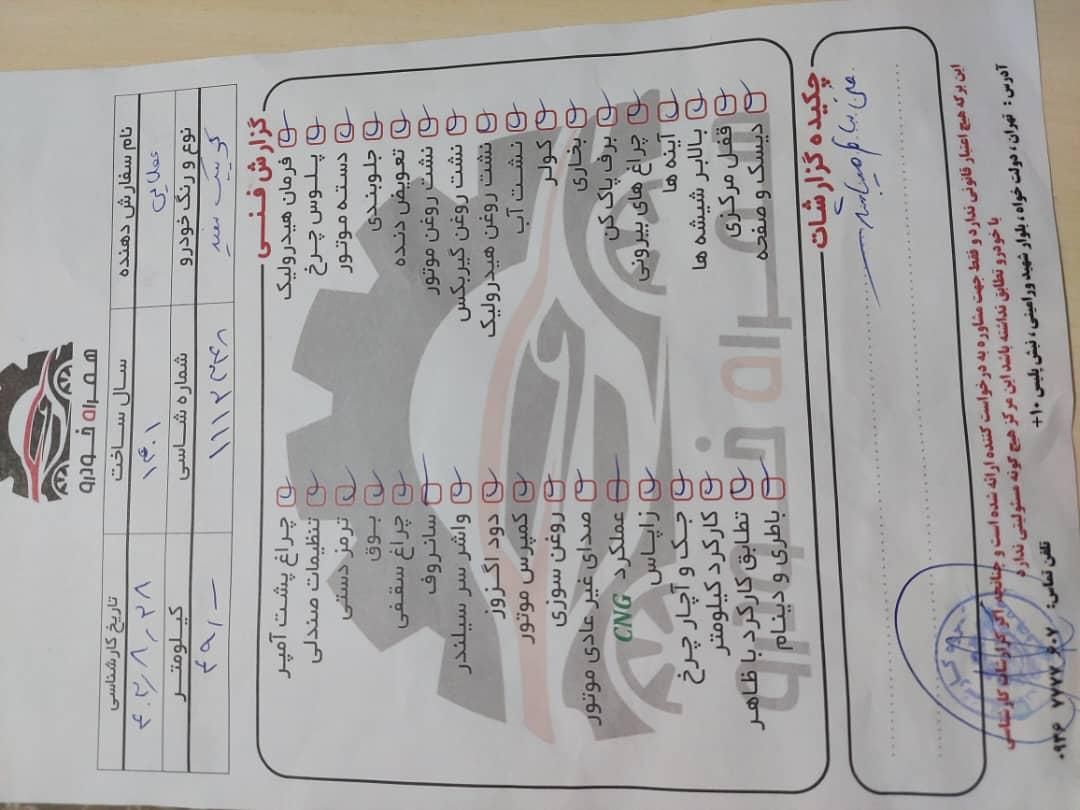 همراه خودرو
نام سفارش دهنده سال ساخت تاریخ کارشناسی
۱۴۰۱ ۴۰۲/۸/۲۸
نوع و رنگ خودرو شماره شاسی کیلومتر
سفید ۱۱۱۲۳۳۸
گزارش فنی
فرمان هیدرولیک چراغ پشت آمپر
پلوس چرخ تنظیمات صندلی
دسته موتور ترمز دستی
جلوبندی بوق
تعویض دنده چراغ سقفی
نشت روغن موتور سانروف
نشت روغن گیربکس واشر سر سیلندر
نشت روغن هیدرولیک دود اگزوز
نشت آب کمپرس موتور
کولر روغن سوزی
بخاری صدای غیر عادی موتور
برف پاک کن عملکرد CNG
چراغ های بیرونی زاپاس
آینه ها جک و آچار چرخ
بالابر شیشه ها کارکرد کیلومتر
قفل مرکزی تطابق کارکرد با ظاهر
دیسک و صفحه باطری و دینام
همراه خودرو
چکیده گزارشات
فنی سالم میباشد
این برگه هیچ اعتبار قانونی ندارد و فقط جهت مشاوره به درخواست کننده ارائه شده است و چنانچه اگر گزارشات کارشناسی
با خودرو تطابق نداشته باشد این مرکز هیچ گونه مسئولیتی ندارد
آدرس : تهران، دولت خواه ، بلوار شهید ورامینی ، نبش پلیس ۱۰+ تلفن تماس: ۶۰۷ ۷۷۷۷ ۰۹۳۶